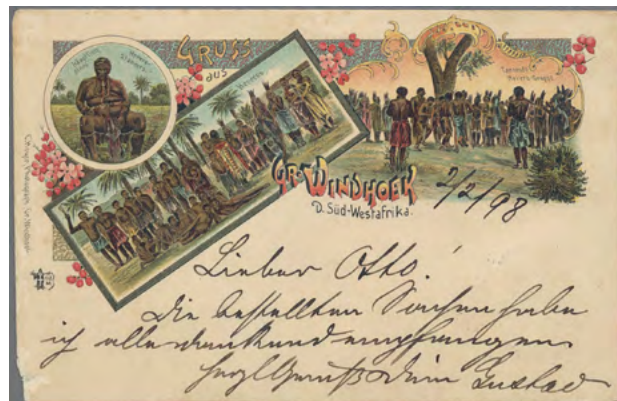 GRUSS
aus
Hereros
GR-WINDHOEK
D. Süd-Westafrika.
2/2/98
Lieber Otto!
Die bestellten Sachen habe
ich alle dankend empfangen
Herzl Gruß Dein Gustav